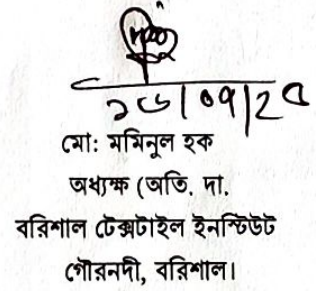 ১৬/০৭/২৫
মো: মমিনুল হক
অধ্যক্ষ (অতি. দা.
বরিশাল টেক্সটাইল ইনস্টিউট
গৌরনদী, বরিশাল।